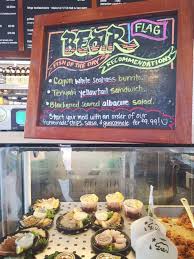 BEAR FLAG
FISH OF THE DAY
RECOMMENDATIONS
• Cajun white seabass burrito.
• Teriyaki yellowtail sandwich.
• Blackened seared albacore salad.
Start your meal with an order of our
homemade chips, salsa, & guacamole for $9.99!